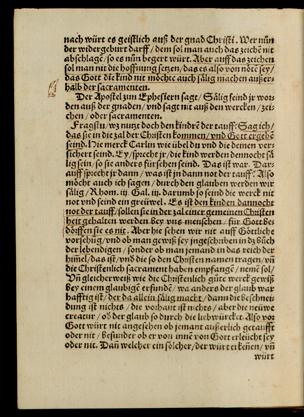 nach würt es geistlich auß der gnad Christi. Wer nũn
der widergeburt darff / dem sol man auch das zeichẽ nit
abschlagẽ / so es nũn begert würt. Aber auff das zeichen
sol man nit die hoffnung setzen / das es also von nötẽ sey /
das Gott die kind nit möcht auch sälig machen außer-
halb der sacramenten.
Der Apostel zum Ephesern sagt / Sälig seind jr wor-
den auß der gnaden / vnd sagt nit auß den wercken / zei-
chen / oder sacramenten.
Fragstu / wz nutzt doch den kindrẽ der tauff: Sag ich /
das sy in die zal der Christẽ kommen / vnd Gott ergebẽ
seind. Hie merck Carlin wie übel du vnd die deinen ver-
sichert seind. Ey / sprecht jr / die kind werden dennocht sä-
lig sein / so sie anders fürsehen seind. Das ist war. Dar-
auff sprecht jr dann / was ist jn dann not der tauff: Also
möcht auch ich sagen / durch den glauben werden wir
sälig / Rhom. iij. Gal. iij. darumb so seind die werck nit
not vnd seind ein greüwel. Es ist den kinden dannocht
not der tauff / sollen sie in der zal einer gemeinen Christen-
heit gehalten werden bey vns menschen / für Gott be-
dörffen sie es nit. Aber hie sehen wir nit auff Göttliche
vorsehũg / vnd ob man gewiß sey jngeschriben in dz bůch
der lebendigen / sonder ob man jemand in das reich der
himel / das ist / vnd die so den Christen namen tragen / vñ
die Christenlich sacrament haben empfangẽ / nemẽ sol /
Dñ gleicher weiß wie die Christenlich gůte werck gewiß
bey einem glaubigẽ erfunde / wa anders der glaub war-
hafftig ist / der da allein sälig macht / dann die beschnei-
dung ist nichts / die vorhaut ist nichts / aber die neüwe
creatur / ob der glaub so durch die lieb würckt. Also vor
Gott würt nit angesehen ob jemant außerlich getaufft
oder nit / besunder ob er von innẽ von Gott erleücht sey
oder nit. Dañ welcher ein solcher / der würt erkẽnen / vñ
würt